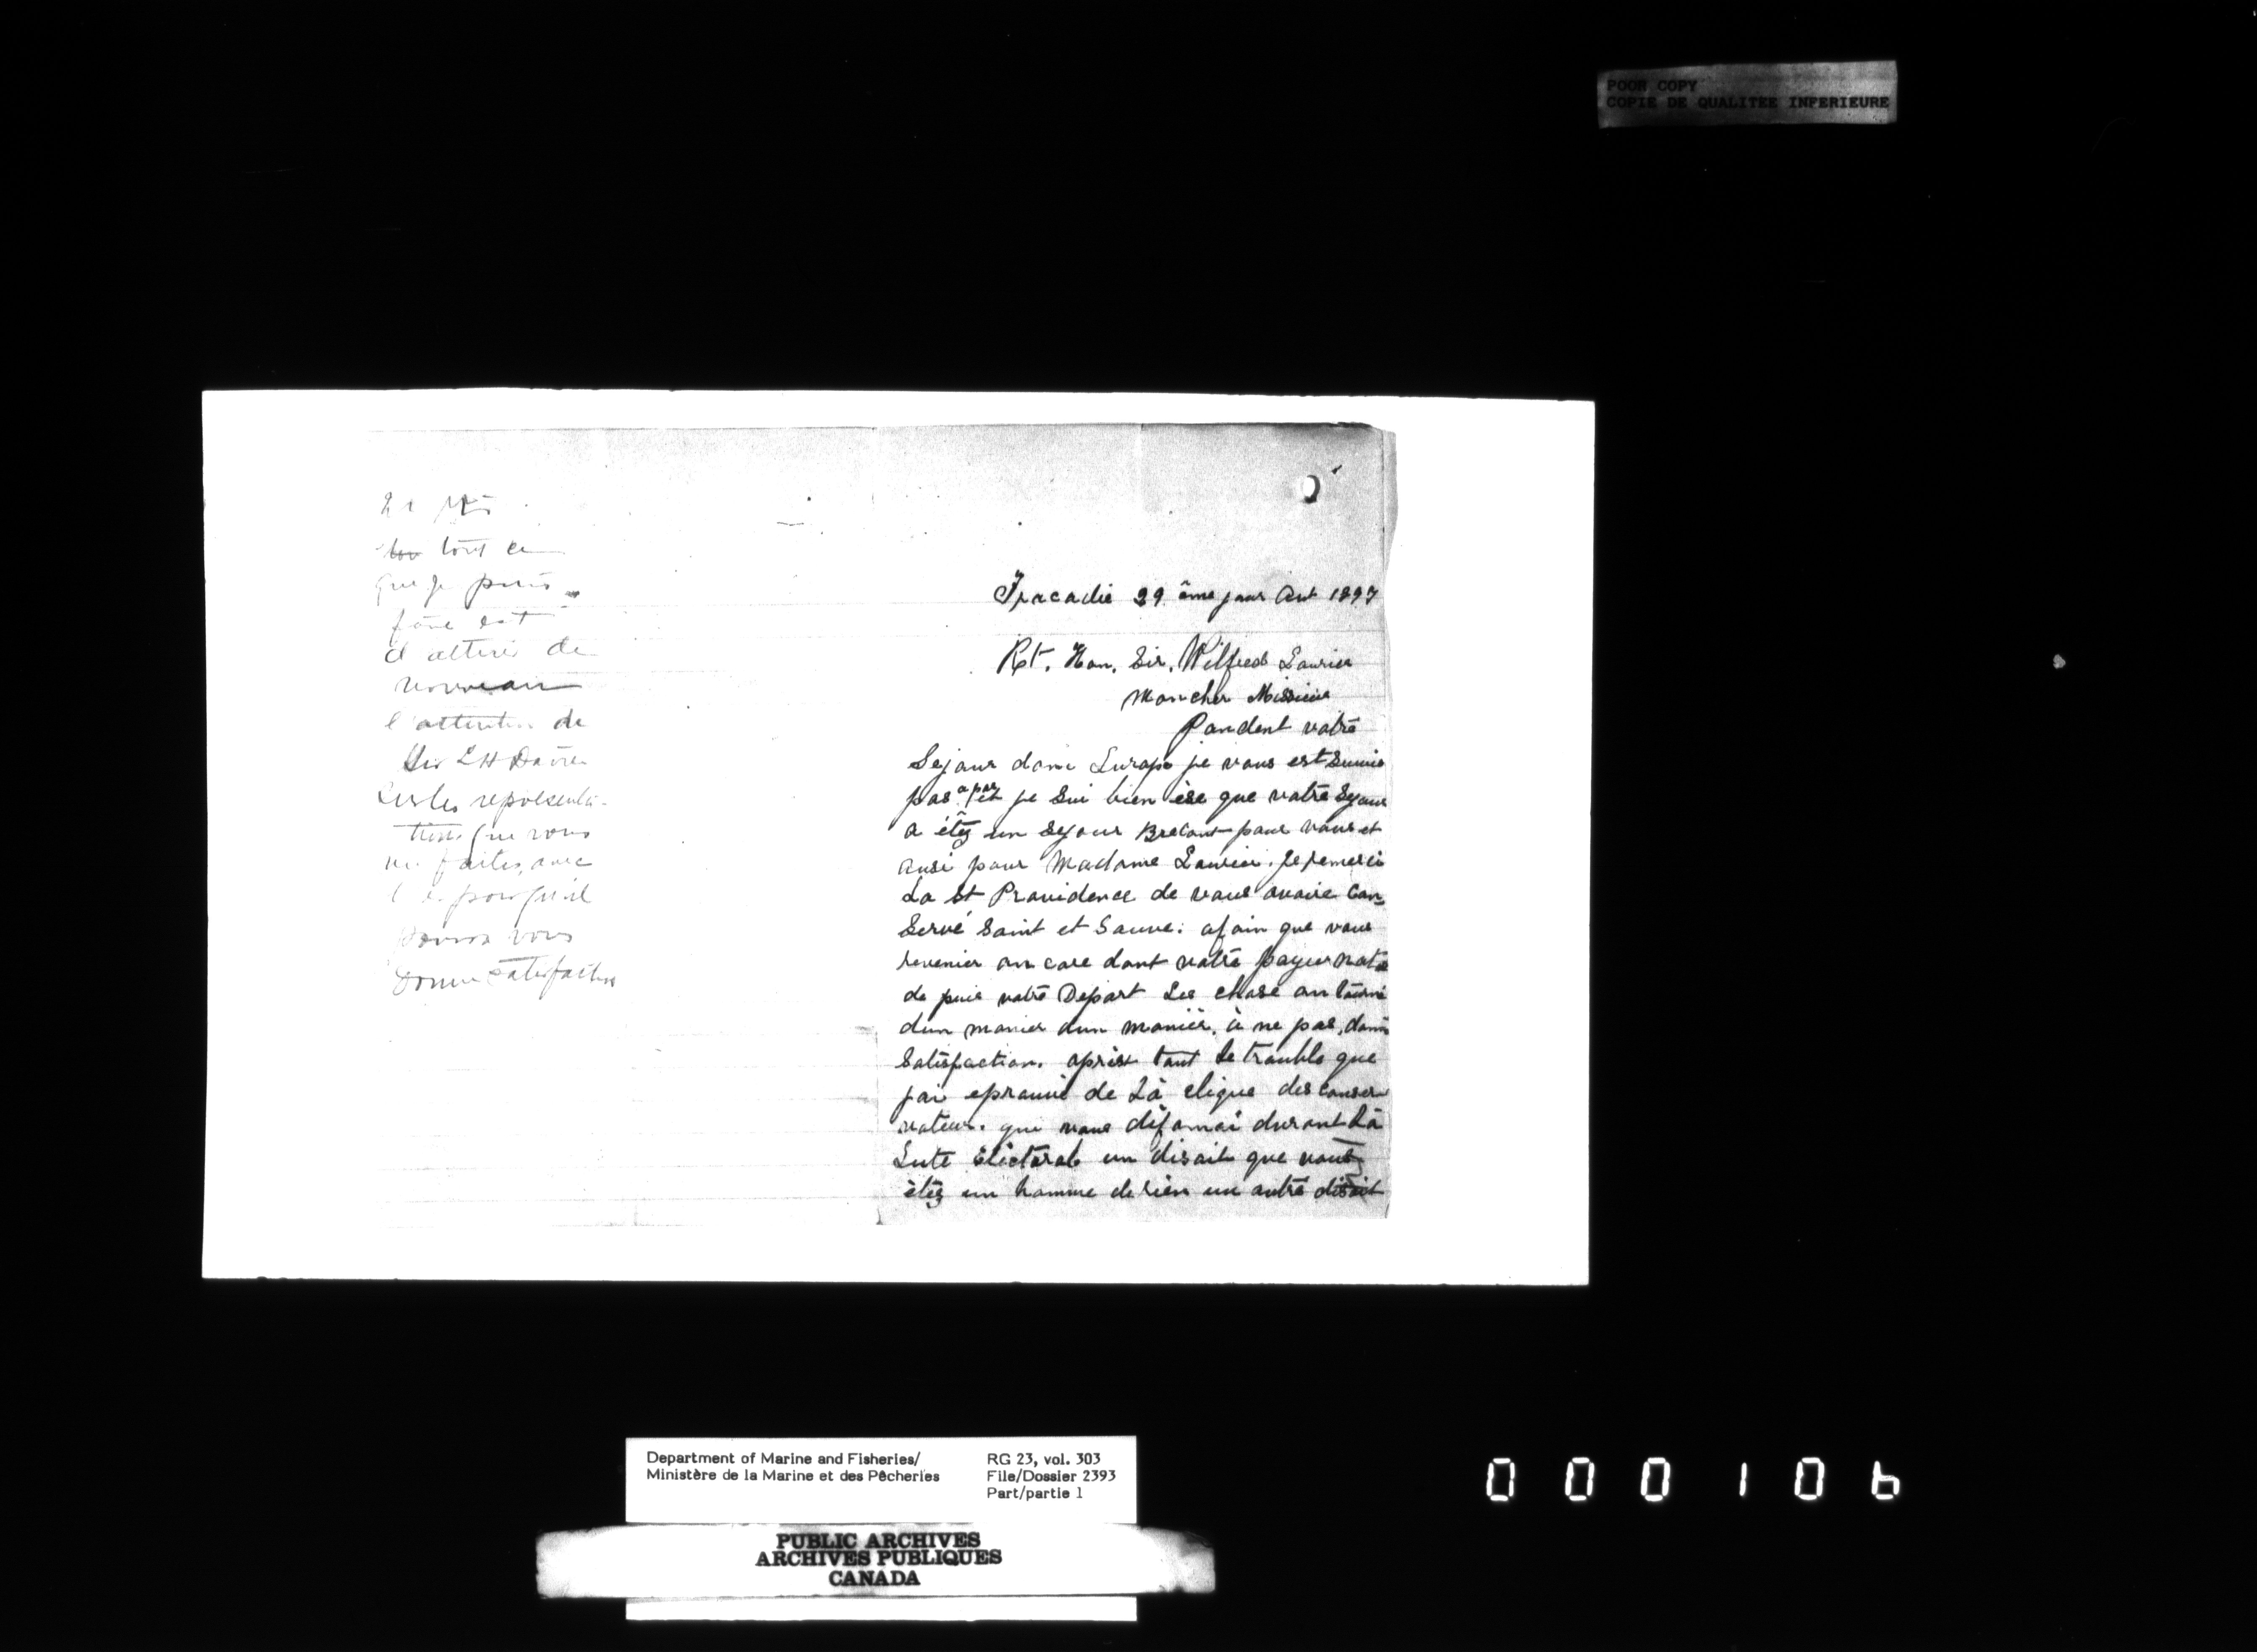 POOR COPY
COPIE DE QUALITEE INFERIEURE
21
tout ce
que je puis
faire est
d attirer de
nouveau
l'attention de
Sir L H Davies
sur les représenta-
tions que vous
me faites, avec
pour qu'il
pourra vous
donner satisfaction
Tracadie 29 ême jour Out 1897
Rt. Hon. Sir. Wilfred Laurier
Mon cher Missieur
Pandent votre
Sejour dans Europe je vous est
pas et je Sui bien èse que votre Sejour
a étêz un Sejour pour vous et
ausi pour Madame Laurier. Je remerci
La St Providence de vous avoire Con-
Servé Saint et Sauve: afain que vous
revenier an core dant votre
de puis votre Depart Les chose an
dun manier dun manièr. à ne pas, donn
Satisfaction. aprèst tout le trouble que
jai eprouvé de Là clique des conser-
vateur. qui vous difamai durant Là
Lute élictoral un disait que vous
étêz un homme de rien un autre disait
Department of Marine and Fisheries/
Ministère de la Marine et des Pêcheries
RG 23, vol. 303
File/Dossier 2393
Part/partie 1
PUBLIC ARCHIVES
ARCHIVES PUBLIQUES
CANADA
000106